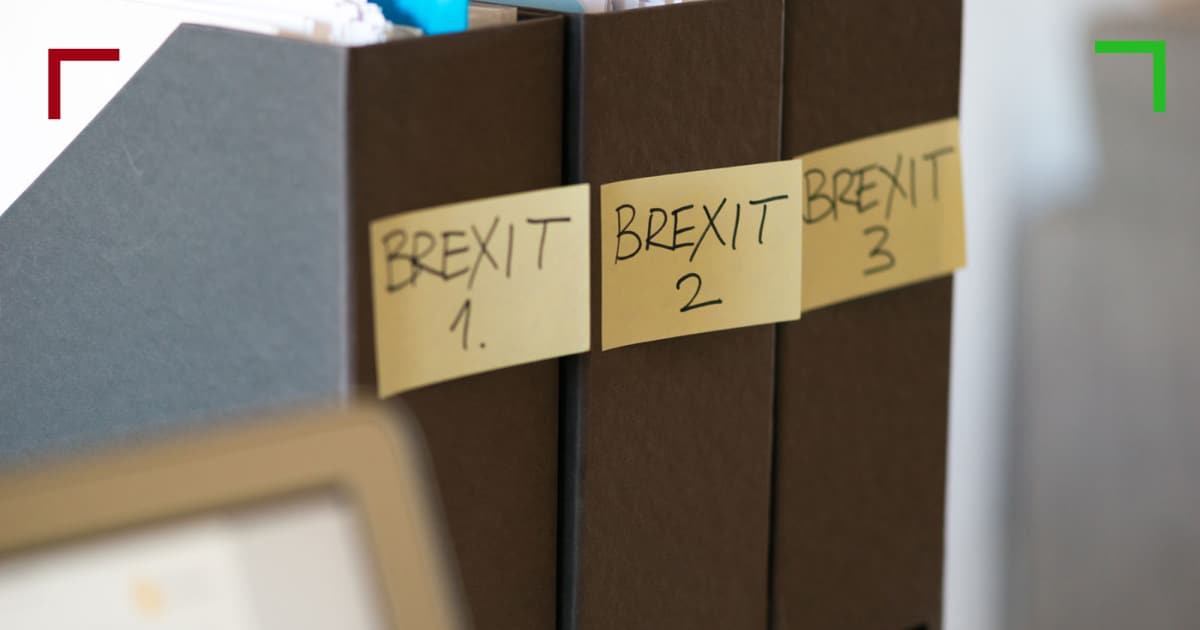 BREXIT
1.
BREXIT
2
BREXIT
3